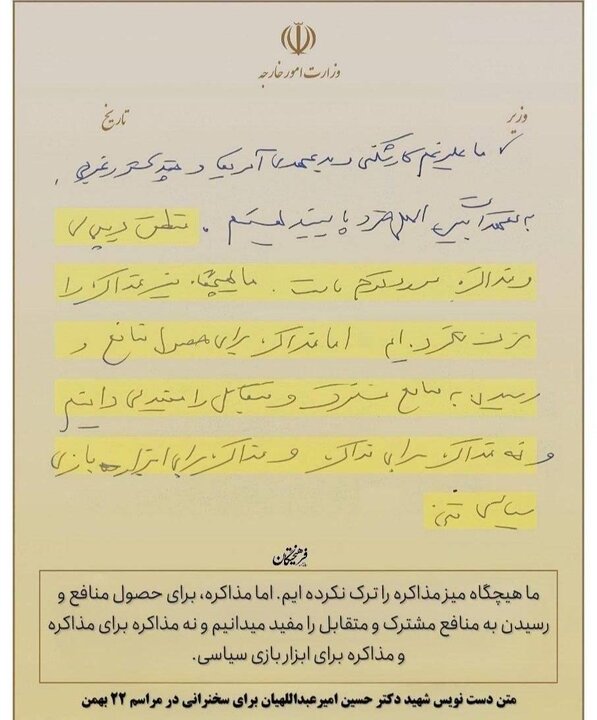 وزارت امور خارجه
وزیر
تاریخ
ما علیرغم کارشکنی و بدعهدی آمریکا و چند کشور غربی،
به تعهدات بین المللی خود پایبند هستیم. منطق دیپلماسی
و مذاکره ما است. ما هیچگاه میز مذاکره را
ترک نکرده ایم اما مذاکره برای حصول منافع و
رسیدن به منافع مشترک و متقابل را مفید می دانیم
و نه مذاکره برای مذاکره و مذاکره برای ابزار بازی
سیاسی
فرهیختگان
ما هیچگاه میز مذاکره را ترک نکرده ایم. اما مذاکره، برای حصول منافع و
رسیدن به منافع مشترک و متقابل را مفید میدانیم و نه مذاکره برای مذاکره
و مذاکره برای ابزار بازی سیاسی.
متن دست نویس شهید دکتر حسین امیرعبداللهیان برای سخنرانی در مراسم ۲۲ بهمن